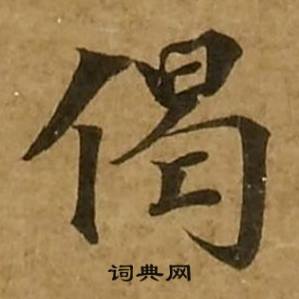 偈
词典网